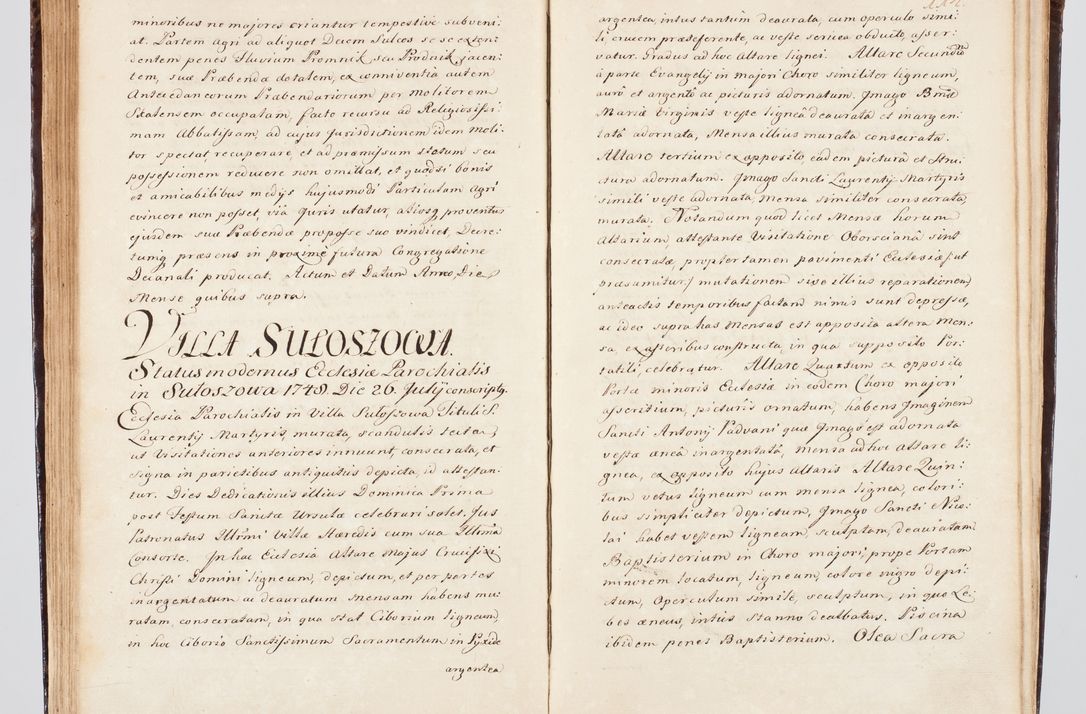 minoribus ne majores oriantur tempestivè subveni:
at. Partem agri ad aliquot Decem Sulcos se se exten:
dentem penes Fluvium Promnik, seu Prodnik, jacen:
tem, suæ Præbendæ dotalem, ex conniventia autem
Antecedaneorum Præbendariorum per molitorem
Skalensem occupatam, facto recursu ad Religiosissi:
mam Abbatissam, ad cujus Jurisdictionem idem moli:
tor spectat recuperare, et ad præmissum statum seu
possessionem reducere non omittat, et quodsi bonis
et amicabilibus medijs hujusmodi Particulam agri
evincere non posset, viâ Juris utatur, aliosq proventus
ejusdem suæ Præbendæ proposse suo vindicet, Decre:
tumq præsens in proximè futura Congregatione
Decanali producat. Actum et Datum Anno, Die
Mense quibus supra.
VILLA SUŁOSZOWA.
Status modernus Ecclesiæ Parochialis
in Sułoszowa 1748. Die 26. Julij conscriptq.
Ecclesia Parochialis in Villa Sułoszowa Tituli S.
Laurentij Martyris, murata, scandulis tecta,
ut Visitationes anteriores innuunt, consecrata, et
signa in parietibus antiquitùs depicta, id attestan:
tur. Dies Dedicationis illius Dominica Prima
post Festum Sanctæ Ursulæ celebrari solet. Jus
Patronatus Illrmi Villæ Hæredis cum sua Illrma
Consorte. In hac Ecclesia Altare Majus Crucifixi
Christi Domini ligneum, depictum, et per partes
inargentatum ac deauratum Mensam habens mu:
ratam, consecratam, in qua stat Ciborium ligneum,
in hoc Ciborio Sanctissimum Sacramentum in Pyxide
argentea
argentea, intus tantùm deaurata, cum operculo simi:
li, crucem præseferente, ac veste sericea obducto, asser:
vatur. Gradus ad hoc Altare lignei. Altare Secundum
à parte Evangelij in majori Choro similiter ligneum,
aurô et argentô ac picturis adornatum. Imago Bmæ
Mariæ Virginis veste ligneâ deaurata et inargen:
tatâ adornata, Mensa illius murata consecrata.
Altare tertium ex apposito, eadem picturâ et stru:
cturâ adornatum. Imago Sancti Laurentij Martyris
simili veste adornata, Mensa similiter consecrata,
murata. Notandum quòd licèt Mensæ horum
Altarium, attestante Visitatione Oborsciana sint
consecratæ, propter tamen pavimenti Ecclesiæ /ut
præsumitur/ mutationem sive illius reparationem,
anteactis temporibus factam nimis sunt depressæ,
ac ideo supra has Mensas est apposita altera Men:
sa, ex asseribus constructa, in qua supposito Por:
tatili, celebratur. Altare Quartum ex opposito
Portæ minoris Ecclesiæ in eodem Choro majori
asseritium, picturis ornatum, habens Imaginem
Sancti Antonij Paduani quæ Imago est adornata
veste ænea inargentatâ, mensa ad hoc Altare li:
gnea, ex opposito hujus Altaris Altare Quin:
tum vetus ligneum cum mensa lignea, colori:
bus simpliciter depictum, Imago Sancti Nico:
lai habet vestem ligneam, sculptam, deauratam.
Baptisterium in Choro majori, prope Portam
minorem locatum, ligneum, colore nigro depi:
ctum, Operculum simile, sculptum, in quo Le:
bes æneus, intùs Stanno dealbatus. Piscina
ibidem penes Baptisterium. Olea Sacra